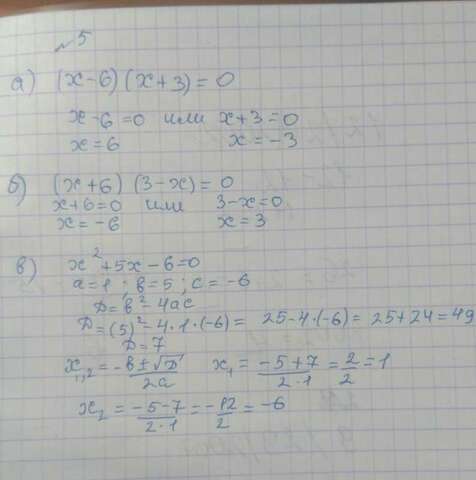 № 5
а) (x-6) (x+3) = 0
x-6=0 или x+3=0
x=6 x=-3
б) (x+6) (3-x) = 0
x+6=0 или 3-x=0
x=-6 x=3
в) x²+5x-6=0
a=1; b=5; c=-6
D=b²-4ac
D=(5)²-4·1·(-6)= 25-4·(-6)=25+24=49
D=7
x₁,₂=-b±√D/2a x₁=-5+7/2·1=2/2=1
x₂=-5-7/2·1=-12/2=-6